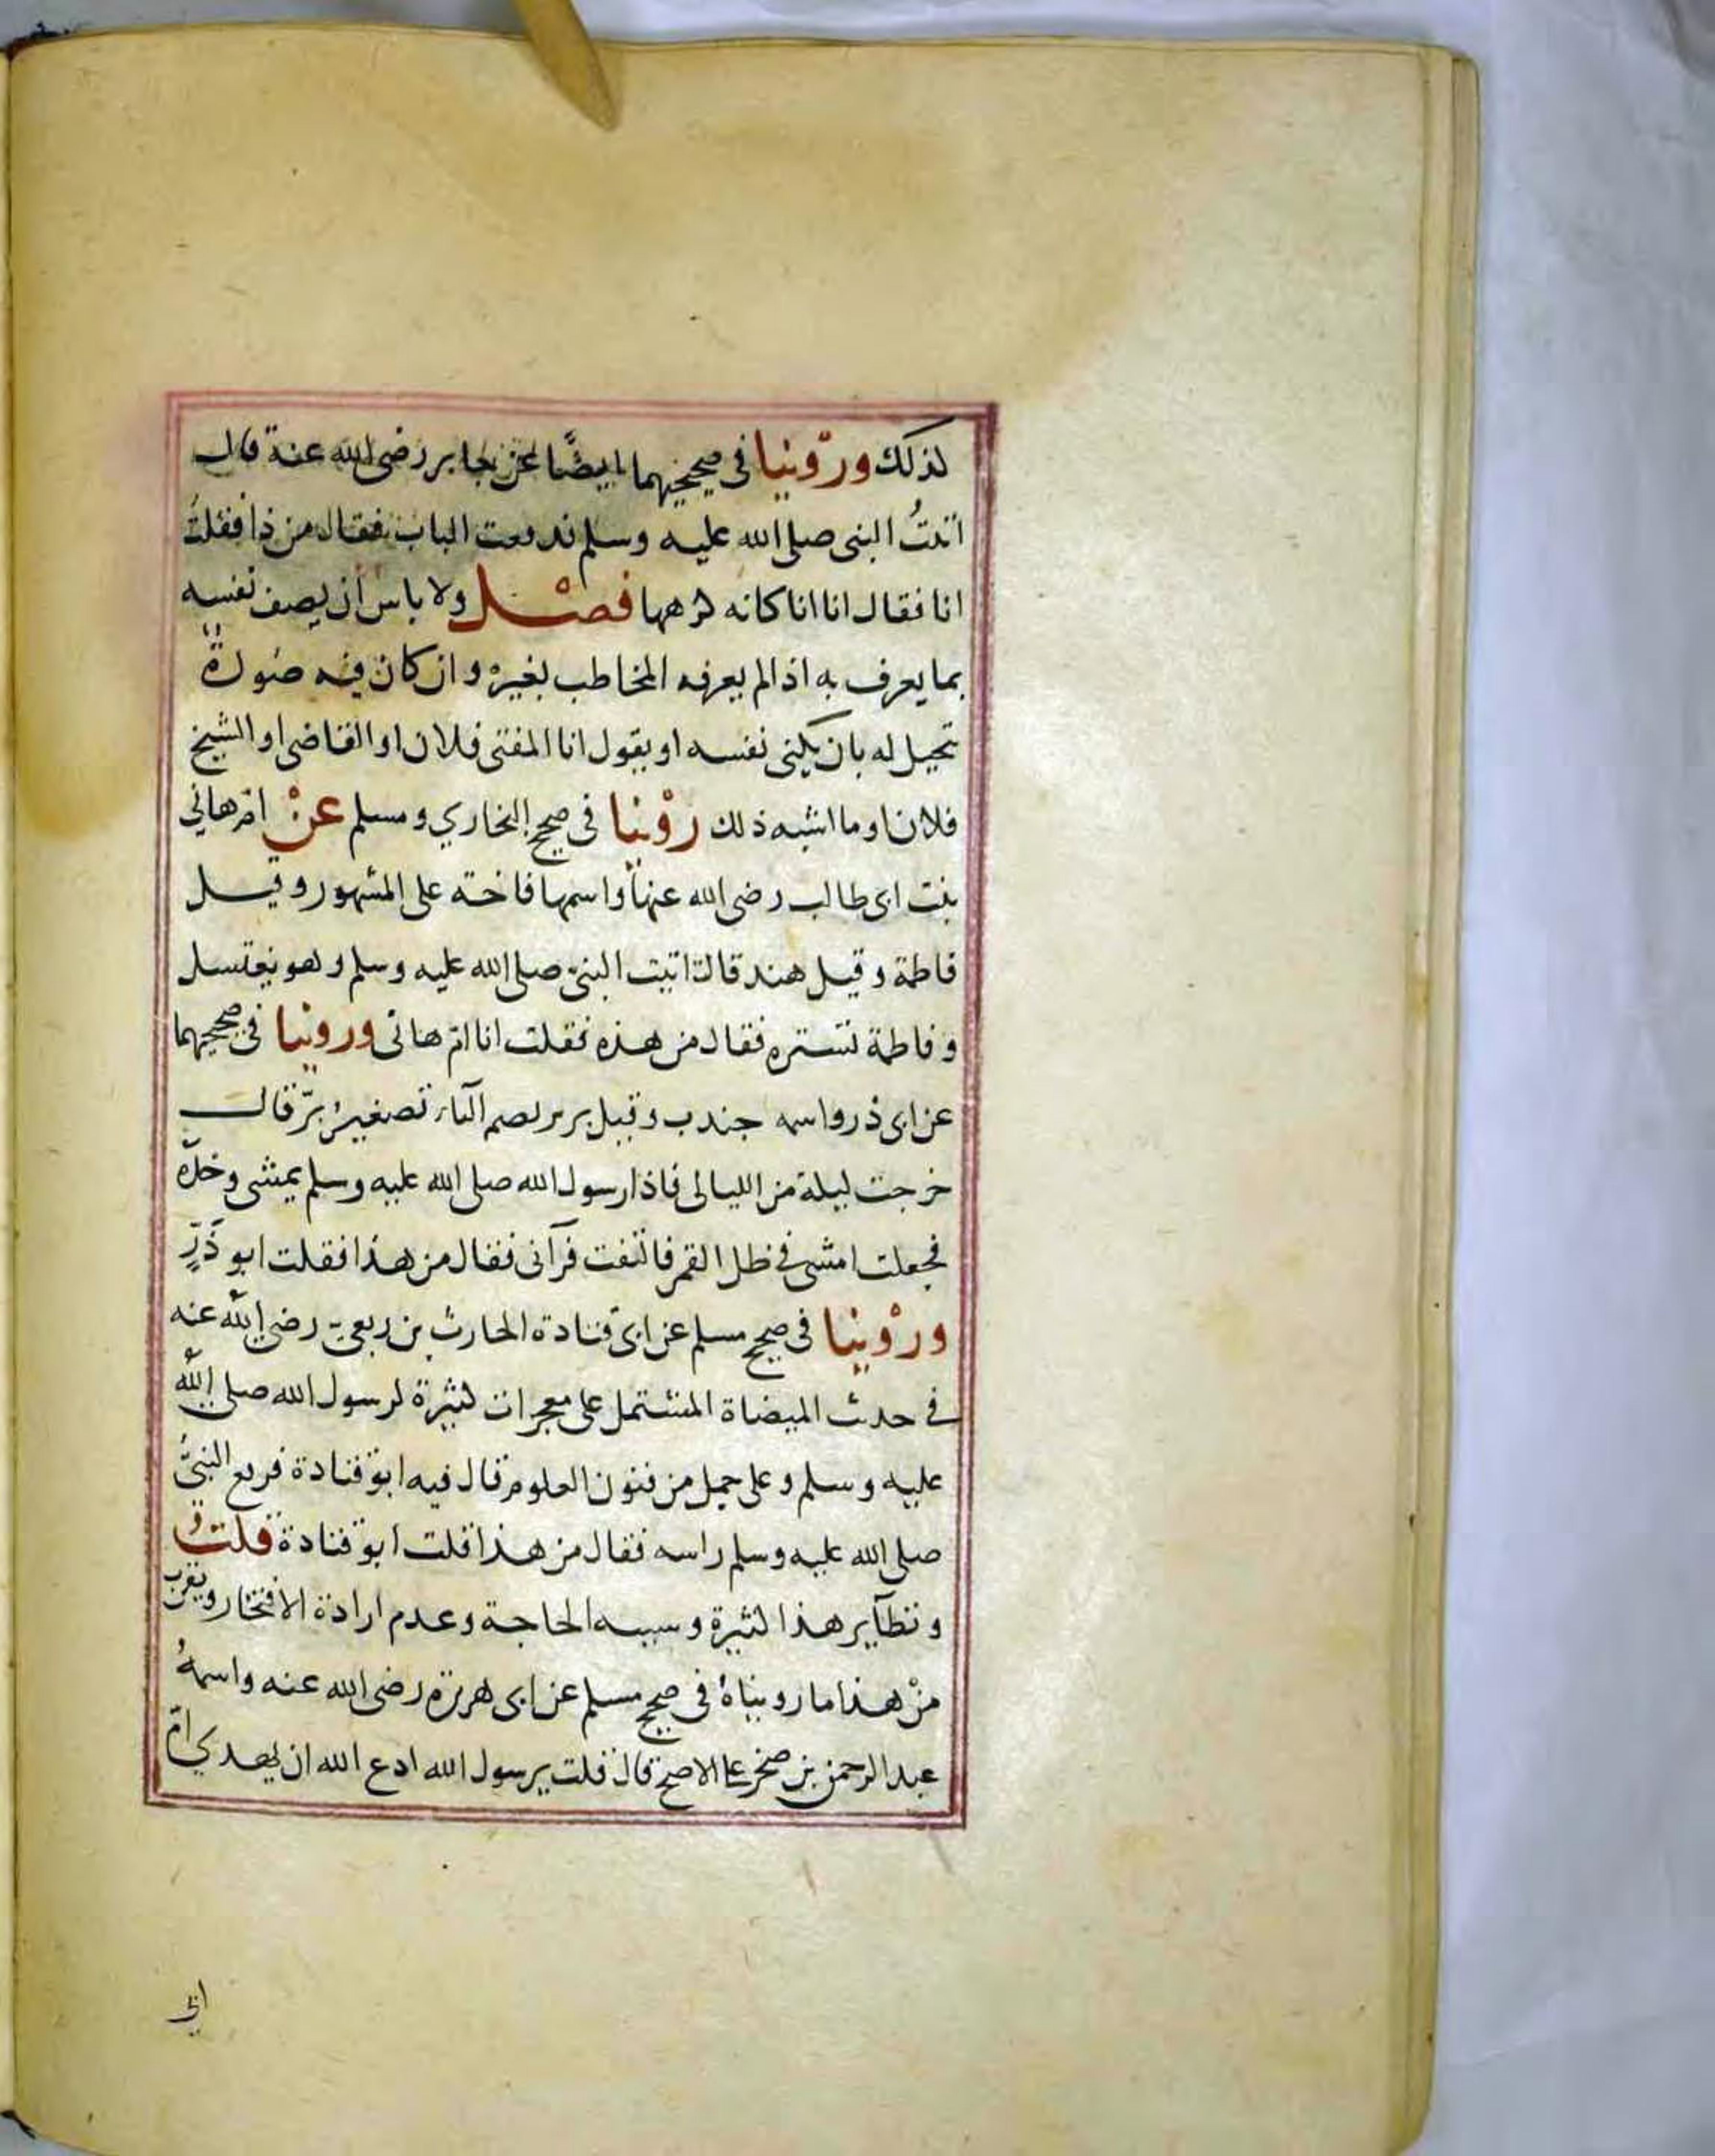 لذلك وروينا فى صحيحيهما ايضًا عن جابر رضى الله عنه قال
اتيتُ النبى صلى الله عليه وسلم فدفعت الباب فقال من ذا فقلتُ
انا فقال انا انا كانه كرهها فصل ولا باس ان يصف نفسه
بما يعرف به اذا لم يعرفه المخاطب بغيره وان كان فيه صورة
تجيل له بان يكنى نفسه او يقول انا المفتى فلان او القاضى او الشيخ
فلان او ما اشبه ذلك روينا فى صحيح البخاري ومسلم عن امّ هاني
بنت ابى طالب رضى الله عنها واسمها فاخته على المشهور وقيل
فاطمة وقيل هند قالت اتيت النبىّ صلى الله عليه وسلم وهو يغتسل
وفاطمة تستره فقال من هذه فقلت انا امّ هانى وروينا فى صحيحيهما
عن ابى ذر واسمه جندب وقيل برير بضم الباء تصغير برّ قال
خرجت ليلة من الليالى فاذا رسول الله صلى الله عليه وسلم يمشى وحدّه
فجعلت امشى فى ظل القمر فالتفت فرآنى فقال من هذا فقلت ابو ذَرٍّ
وروينا فى صحيح مسلم عن ابى قتادة الحارث بن ربعىّ رضى الله عنه
فى حديث الميضاة المشتمل على معجزات كثيرة لرسول الله صلى الله
عليه وسلم وعلى جمل من فنون العلوم قال فيه ابو قتادة فرفع النبىُّ
صلى الله عليه وسلم راسه فقال من هذا قلت ابو قتادة قلت و
ونظآير هذا كثيرة وسببه الحاجة وعدم ارادة الافتخار ويقرب
منْ هذا ما رويناهُ فى صحيح مسلم عن ابى هريرة رضى الله عنه واسمهُ
عبد الرحمن بن صخر على الاصح قال قلت يرسول الله ادع الله ان يهدي امّ
ابى